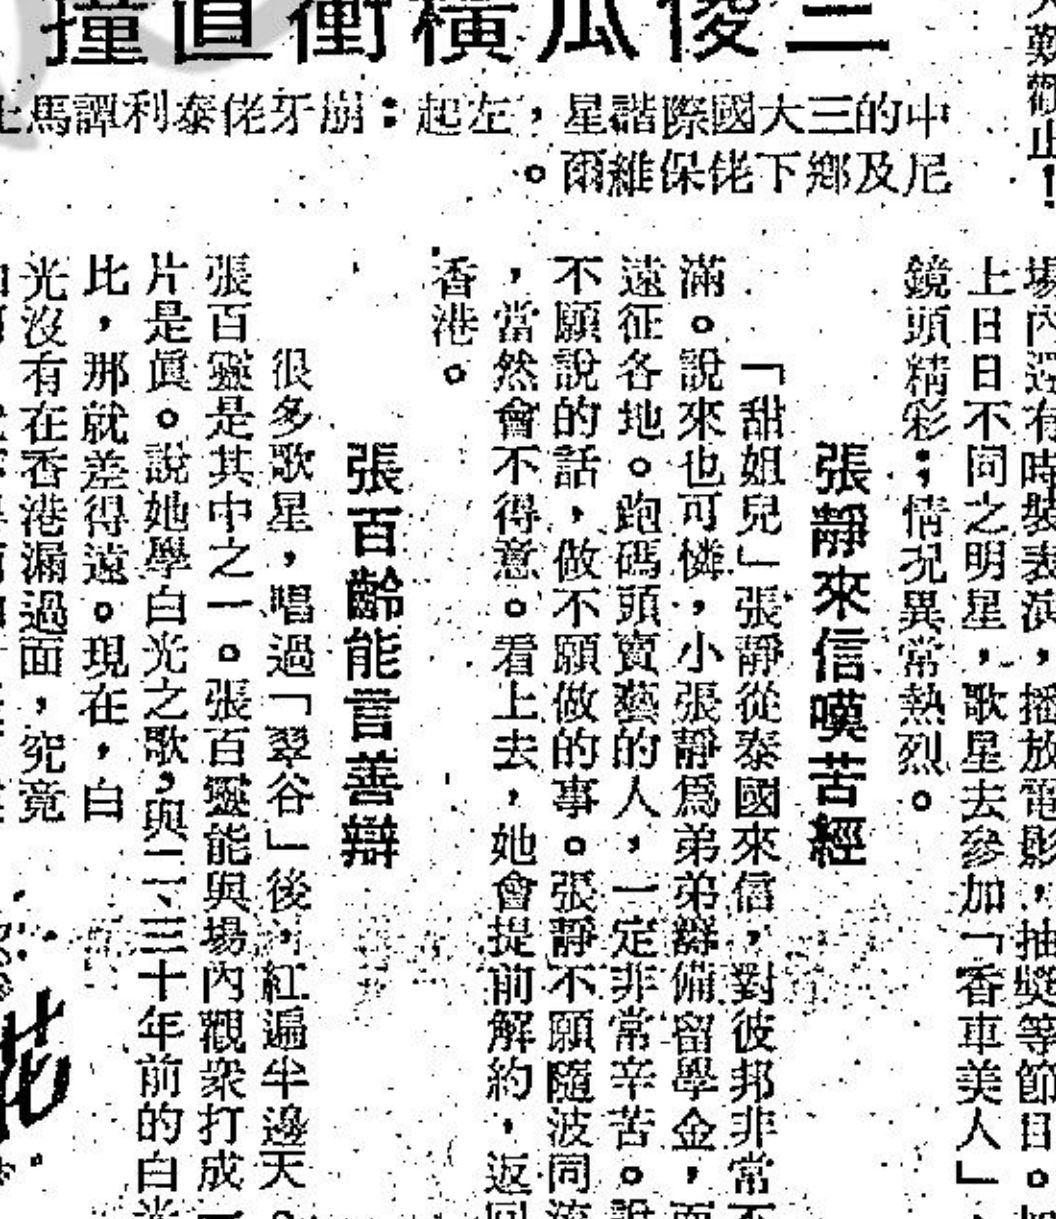 三傻瓜橫衝直撞
中的三大國際諧星,左起:崩牙佬泰利譚馬上
尼及鄉下佬保維爾。
大歎觀止!
場內還有時裝表演,播放電影,抽獎等節目。
上日日不同之明星,歌星去參加「香車美人」,
鏡頭精彩;情況異常熱烈。
張靜來信嘆苦經
「甜姐兒」張靜從泰國來信,對彼邦非常不
滿。說來也可憐,小張靜爲弟弟辦備留學金,而
遠征各地。跑碼頭賣藝的人,一定非常辛苦。說
不願說的話,做不願做的事。張靜不願隨波同流
,當然會不得意。看上去,她會提前解約,返回
香港。
張百齡能言善辯
很多歌星,唱過「翠谷」後,紅遍半邊天。
張百靈是其中之一。張百靈能與場內觀衆打成一
片是眞。說她學白光之歌,與二、三十年前的白光
比,那就差得遠。現在,白
光沒有在香港漏過面,究竟
花